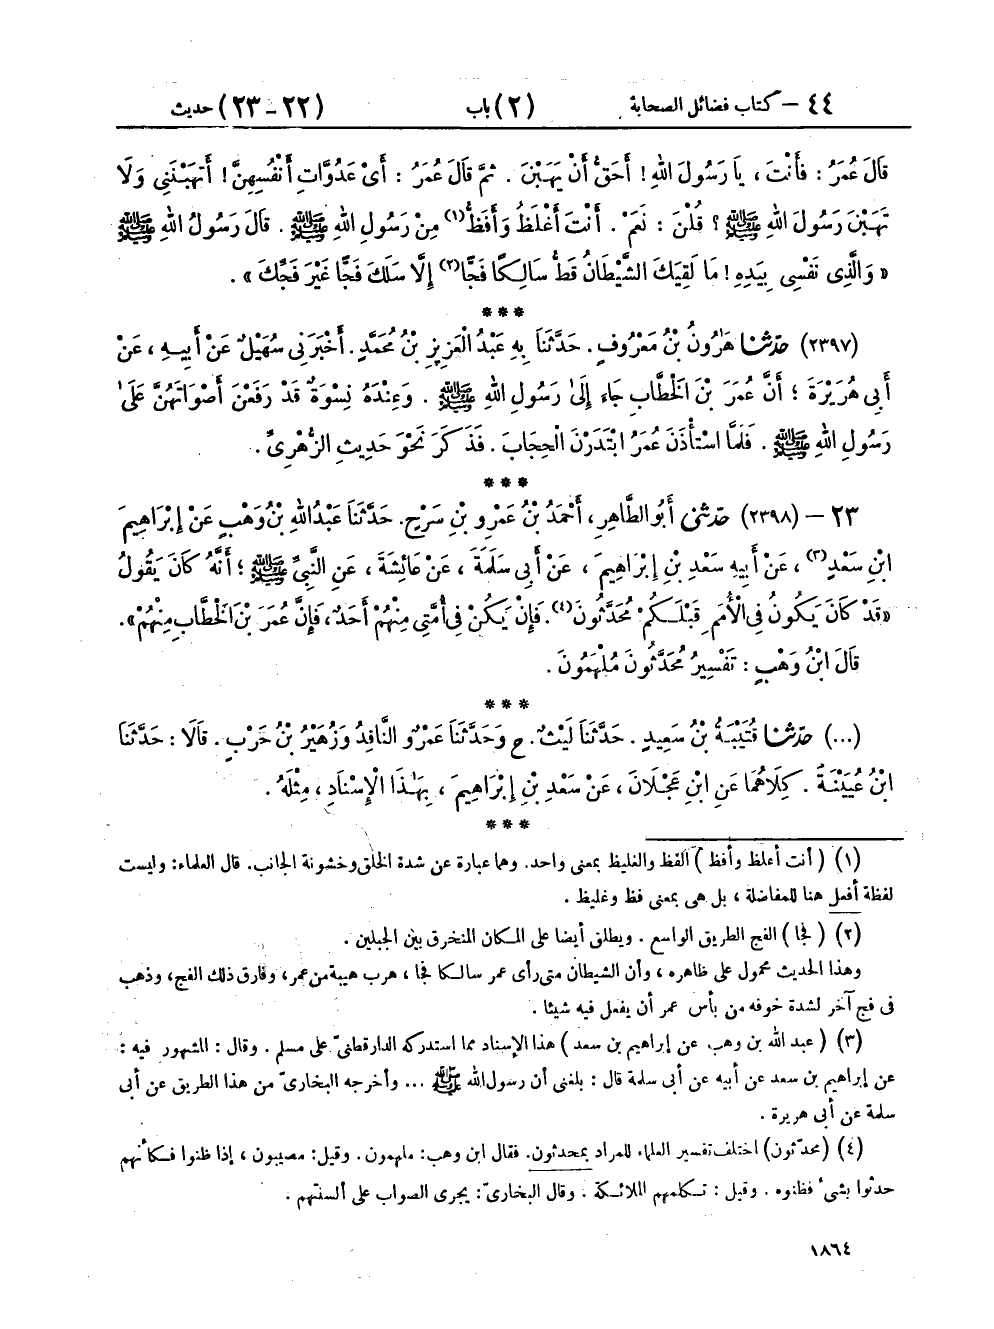 ٤٤ - كتاب فضائل الصحابة (٢) باب (٢٢ - ٢٣) حديث
قَالَ عُمَرُ : فَأَنْتَ ، يَا رَسُولَ اللهِ ! أَحَقُّ أَنْ يَهَبْنَ . ثُمَّ قَالَ عُمَرُ : أَىْ عَدُوَّاتِ أَنْفُسِهِنَّ ! أَتَهَبْنَنِى وَلَا
تَهَبْنَ رَسُولَ اللهِ ﷺ ؟ قُلْنَ : نَعَمْ . أَنْتَ أَغْلَظُ وَأَفَظُّ(١) مِنْ رَسُولِ اللهِ ﷺ . قَالَ رَسُولُ اللهِ ﷺ
« وَالَّذِى نَفْسِى بِيَدِهِ ! مَا لَقِيَكَ الشَّيْطَانُ قَطُّ سَالِكًا فَجًّا(٢) إِلَّا سَلَكَ فَجًّا غَيْرَ فَجِّكَ » .
***
(٢٣٩٧) حَدَّثَنَا هَٰرُونُ بْنُ مَعْرُوفٍ. حَدَّثَنَا بِهِ عَبْدُ الْعَزِيزِ بْنُ مُحَمَّدٍ. أَخْبَرَنِى سُهَيْلٌ عَنْ أَبِيهِ ، عَنْ
أَبِى هُرَيْرَةَ ؛ أَنَّ عُمَرَ بْنَ الْخَطَّابِ جَاءَ إِلَىٰ رَسُولِ اللهِ ﷺ . وَعِنْدَهُ نِسْوَةٌ قَدْ رَفَعْنَ أَصْوَاتَهُنَّ عَلَىٰ
رَسُولِ اللهِ ﷺ . فَلَمَّا اسْتَأْذَنَ عُمَرُ ابْتَدَرْنَ الْحِجَابَ . فَذَكَرَ نَحْوَ حَدِيثِ الزُّهْرِىِّ .
***
٢٣ - (٢٣٩٨) حَدَّثَنِى أَبُو الطَّاهِرِ، أَحْمَدُ بْنُ عَمْرِو بْنِ سَرْحٍ. حَدَّثَنَا عَبْدُ اللهِ بْنُ وَهْبٍ عَنْ إِبْرَاهِيمَ
ابْنِ سَعْدٍ(٣) ، عَنْ أَبِيهِ سَعْدِ بْنِ إِبْرَاهِيمَ ، عَنْ أَبِى سَلَمَةَ ، عَنْ عَائِشَةَ ، عَنِ النَّبِىِّ ﷺ ؛ أَنَّهُ كَانَ يَقُولُ
«قَدْ كَانَ يَكُونُ فِى الْأُمَمِ قَبْلَكُمْ مُحَدَّثُونَ(٤). فَإِنْ يَكُنْ فِى أُمَّتِى مِنْهُمْ أَحَدٌ، فَإِنَّ عُمَرَ بْنَ الْخَطَّابِ مِنْهُمْ».
قَالَ ابْنُ وَهْبٍ : تَفْسِيرُ مُحَدَّثُونَ مُلْهَمُونَ .
***
(...) حَدَّثَنَا قُتَيْبَةُ بْنُ سَعِيدٍ . حَدَّثَنَا لَيْثٌ. ح وَحَدَّثَنَا عَمْرٌو النَّاقِدُ وَزُهَيْرُ بْنُ حَرْبٍ . قَالَا : حَدَّثَنَا
ابْنُ عُيَيْنَةَ . كِلَاهُمَا عَنِ ابْنِ عَجْلَانَ ، عَنْ سَعْدِ بْنِ إِبْرَاهِيمَ ، بِهَٰذَا الْإِسْنَادِ ، مِثْلَهُ .
***
(١) ( أنت أغلظ وأفظ ) الفظ والغليظ بمعنى واحد. وهما عبارة عن شدة الخلق وخشونة الجانب. قال العلماء: وليست
لفظة أفعل هنا للمفاضلة ، بل هى بمعنى فظ وغليظ .
(٢) ( فجا ) الفج الطريق الواسع . ويطلق أيضا على المكان المنخرق بين الجبلين .
وهذا الحديث محمول على ظاهره ، وأن الشيطان متى رأى عمر سالكا فجا ، هرب هيبة من عمر، وفارق ذلك الفج، وذهب
فى فج آخر لشدة خوفه من بأس عمر أن يفعل فيه شيئا .
(٣) ( عبد الله بن وهب عن إبراهيم بن سعد ) هذا الإسناد مما استدركه الدارقطنىّ على مسلم . وقال : المشهور فيه :
عن إبراهيم بن سعد عن أبيه عن أبى سلمة قال : بلغنى أن رسول الله ﷺ ... وأخرجه البخارىّ من هذا الطريق عن أبى
سلمة عن أبى هريرة .
(٤) (محدّثون) اختلف تفسير العلماء للمراد بمحدثون. فقال ابن وهب: ملهمون. وقيل: مصيبون ، إذا ظنوا فكأنهم
حدثوا بشىء فظنوه . وقيل : تكلمهم الملائكة . وقال البخارىّ: يجرى الصواب على ألسنتهم .
١٨٦٤